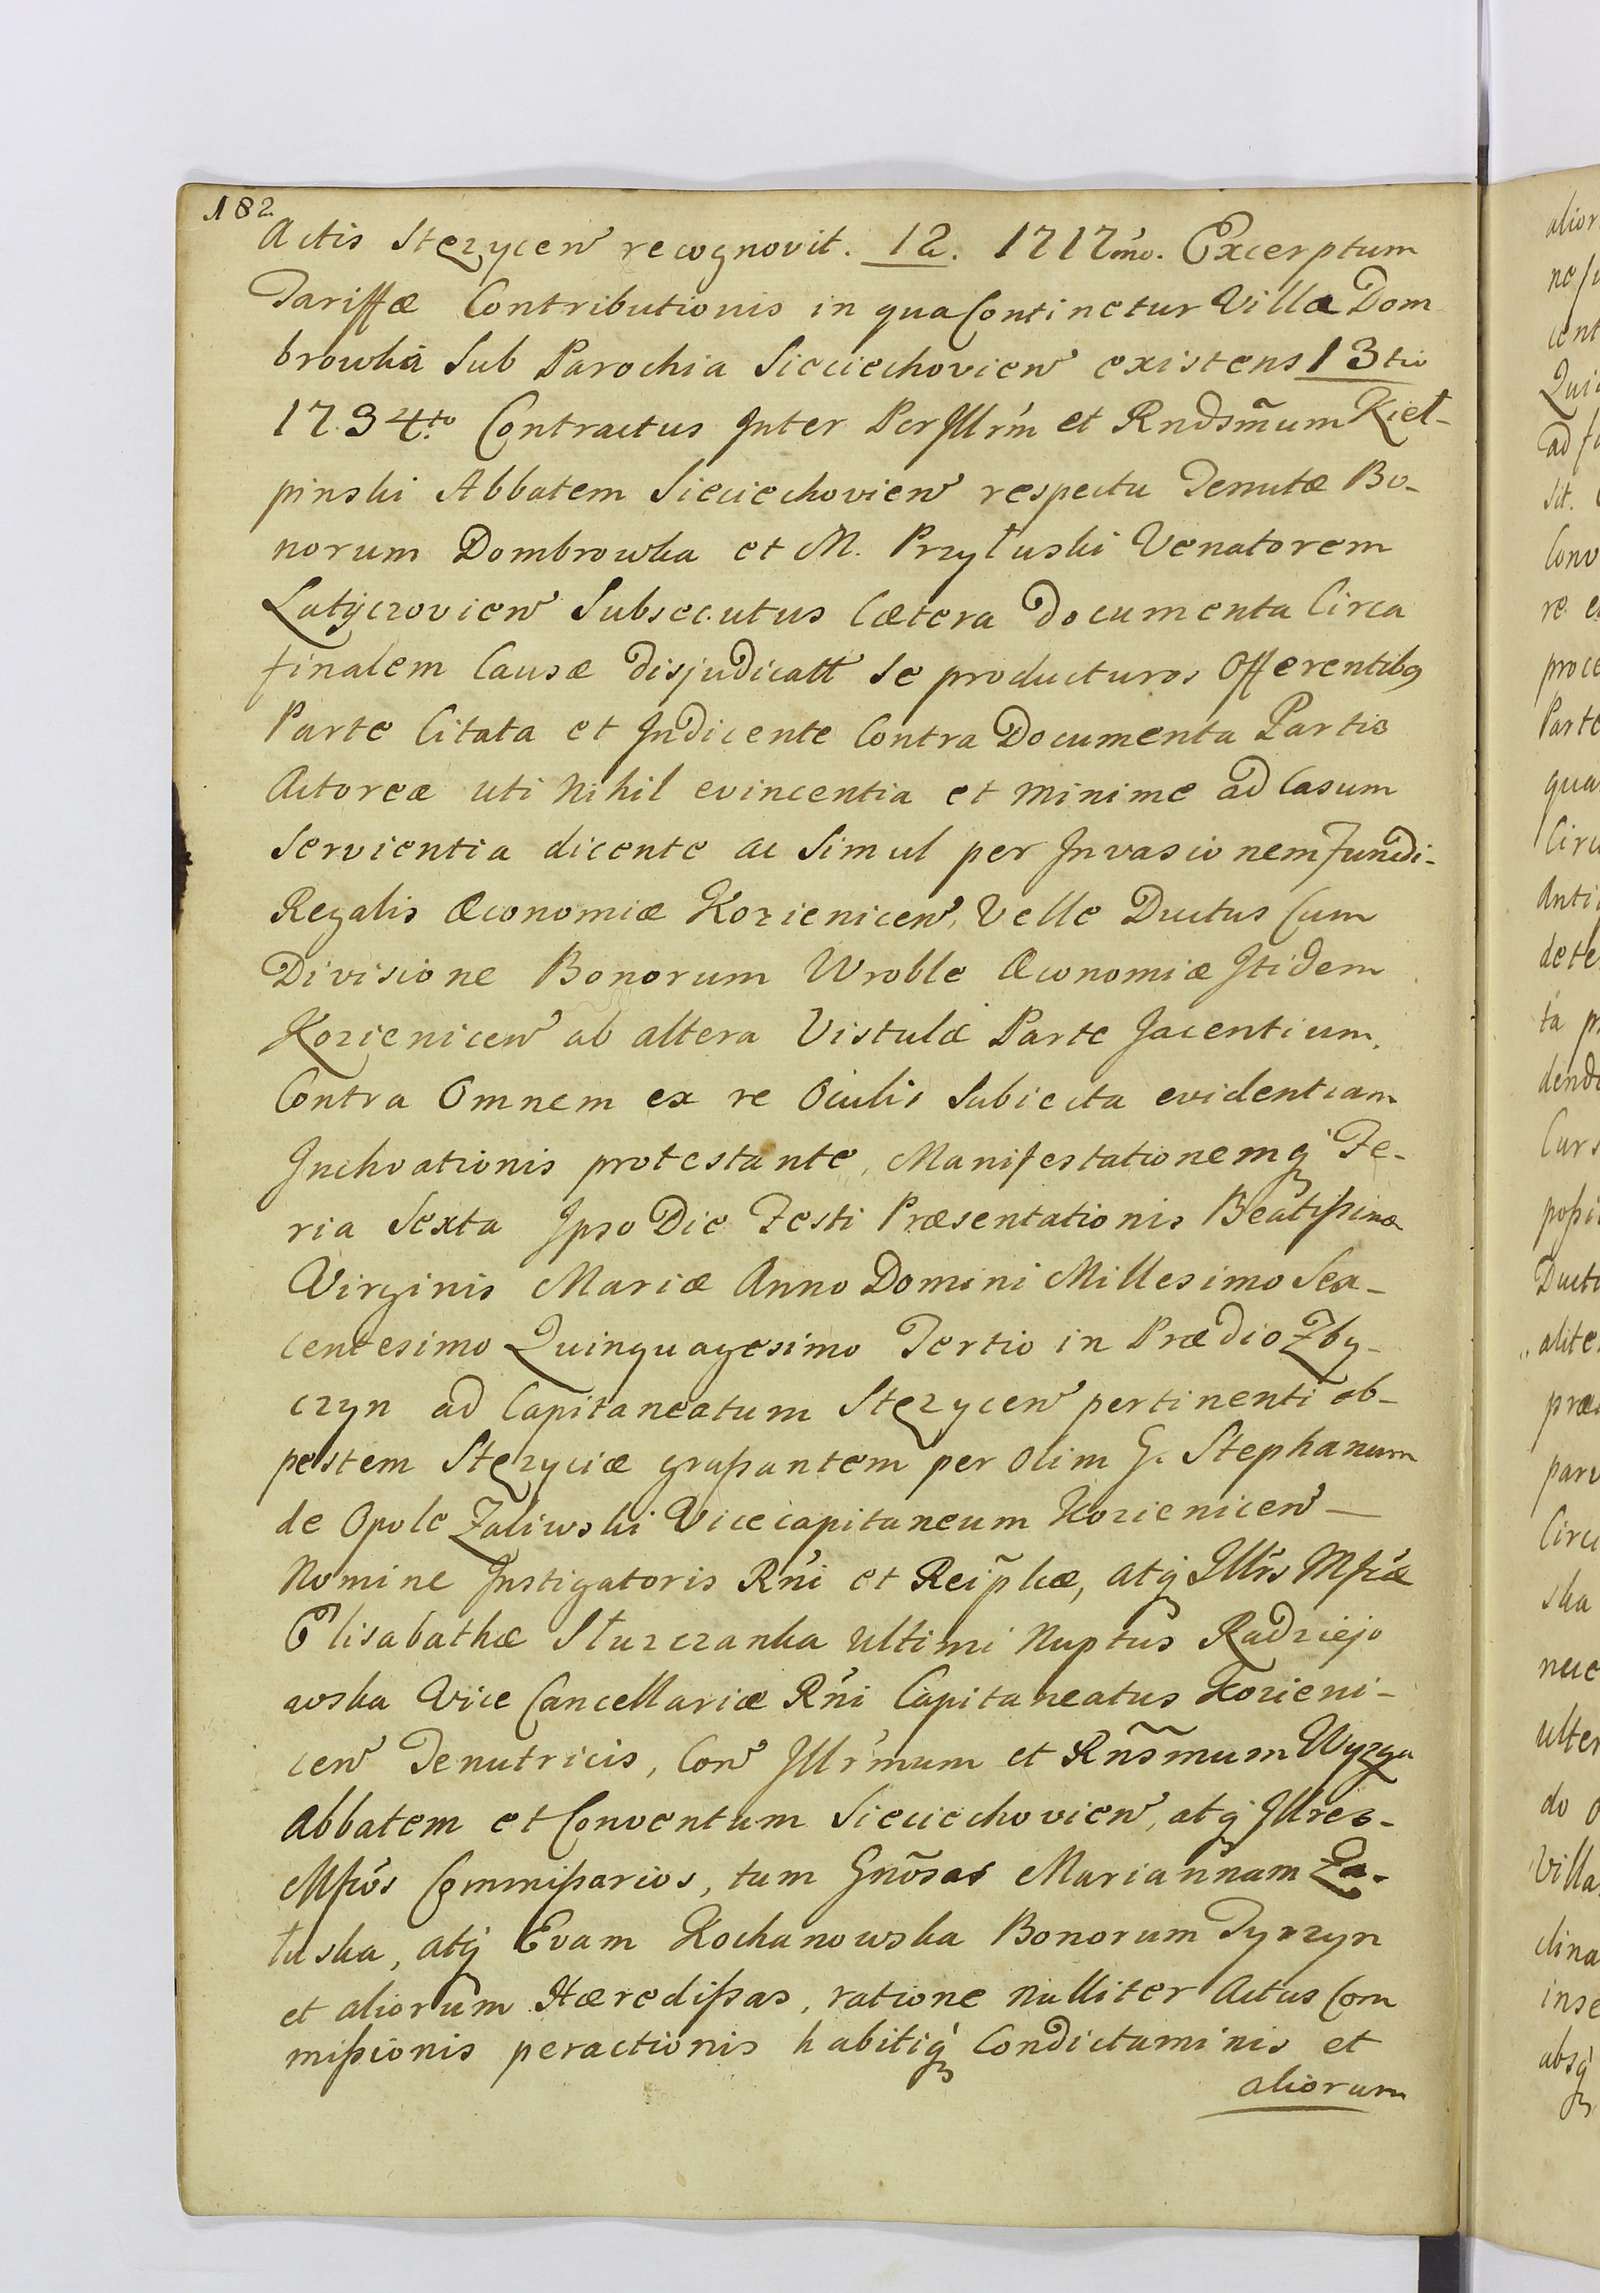 182
Actis Stęzycen̄ recognovit. 12. 1717mo. Excerptum
Tariffæ Contributionis in qua Continetur Villa Dom
browka Sub Parochia Sieciechovien̄ existens 13tio
1734to. Contractus Inter Per Illr̄m et Rndsm̃um Kieł-
pinski Abbatem Sieciechovien̄ respectu Tenutæ Bo-
norum Dombrowka et M. Przyłuski Venatorem
Latyczovien̄ Subsecutus Cætera documenta Circa
finalem Causæ disjudicatt Se producturos Offerentibq
Parte Citata et Indicente Contra Documenta Partis
Actoreæ uti Nihil evincentia et minime ad Casum
Servientia dicente ac Simul per Invasionem Fundi-
Regalis Œconomiæ Kozienicen̄, Velle Ductus Cum
Divisione Bonorum Wroble Œconomiæ Itidem
Kozienicen̄ ab altera Vistulæ Parte Jacentium,
Contra Omnem ex re Oculis Subiecta evidentiam
Inchoationis protestante, Manifestationemq́ Fe-
ria Sexta Ipso Die Festi Præsentationis Beatißimæ
Virginis Mariæ Anno Domini Millesimo Sex-
centesimo Quinquagesimo Tertio in Prædio Zby-
czyn ad Capitaneatum Stęzycen̄ pertinenti ob-
pestem Stęzyciæ graßantem per olim G. Stephanum
de Opole Zaliwski Vicecapitaneum Kozienicen̄ —
Nomine Instigatoris Rńi et Reip̃licæ, atq́ Illr̄s Mficæ
Elisabathæ Słuzczanka ultimi Nuptus Radziejo
wska Vice Cancellariæ Rńi Capitaneatus Kozieni-
cen̄ Tenutricis, Con̄ Illr̄mum et Rñsm̃um Wyzga
Abbatem et Conventum Sieciechovien̄, atq́ Illres-
Mficos Commißarios, tum Gnõsas Mariannam Za-
łuska, atq́ Evam Kochanowska Bonorum Tyrzyn
et aliorum Hæredißas, ratione nulliter Actus Com
mißionis peractionis habitiq́ Condictaminis et
aliorum